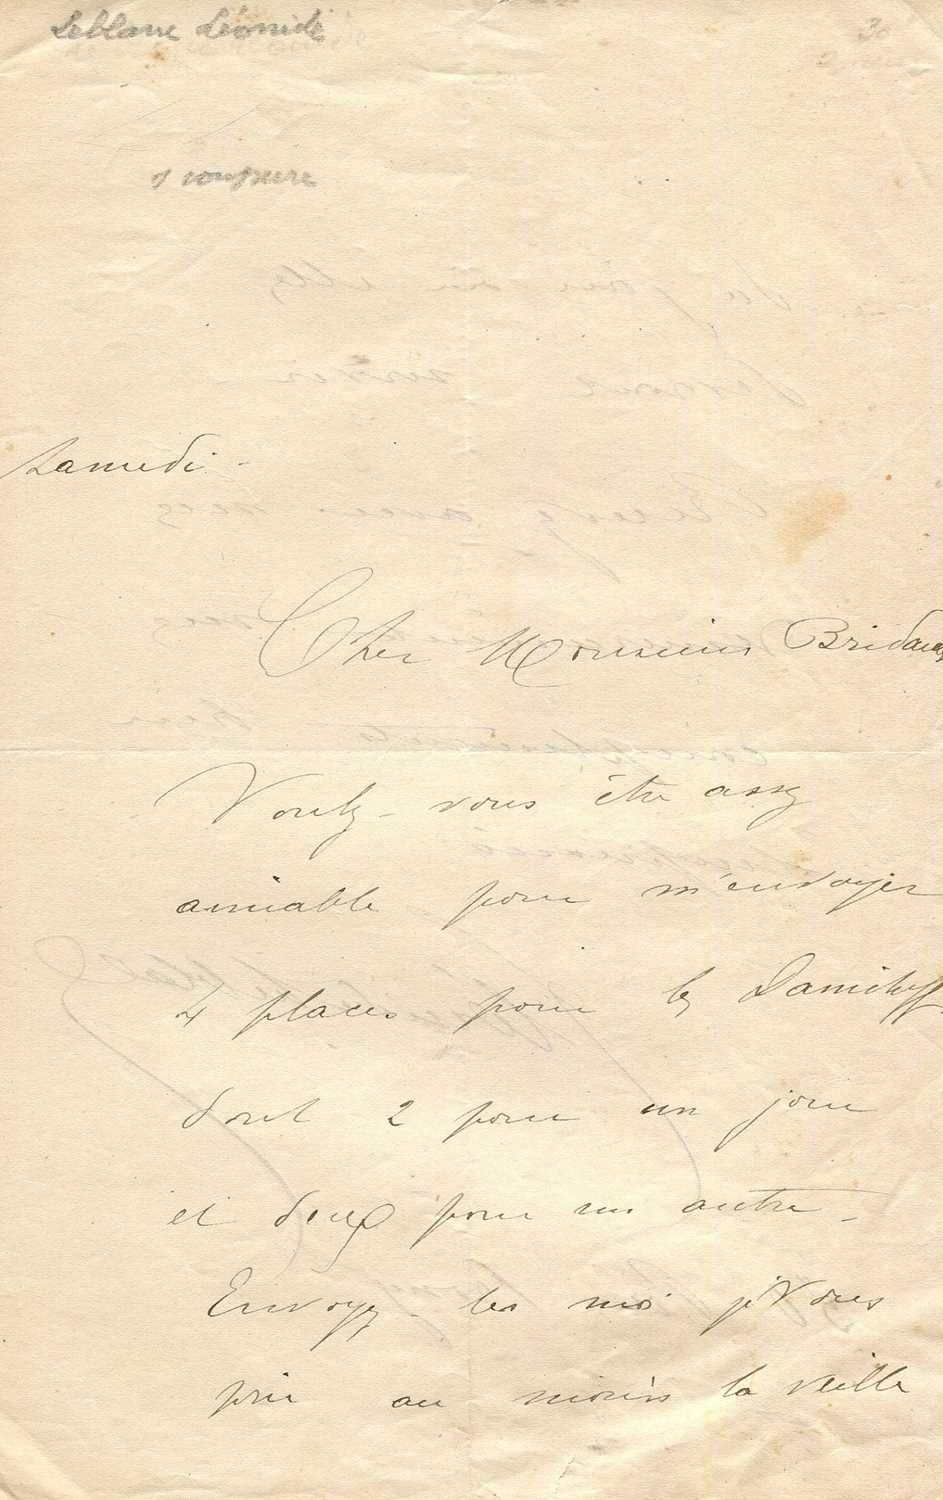 Leblanc Léonide
30
1 coupure
Samedi -
Cher Monsieur Bridault
Voulez-vous être assez
aimable pour m'envoyer
4 places pour les Danicheff
dont 2 pour un jour
et deux pour un autre -
Envoyez-les moi je vous
prie au moins la veille